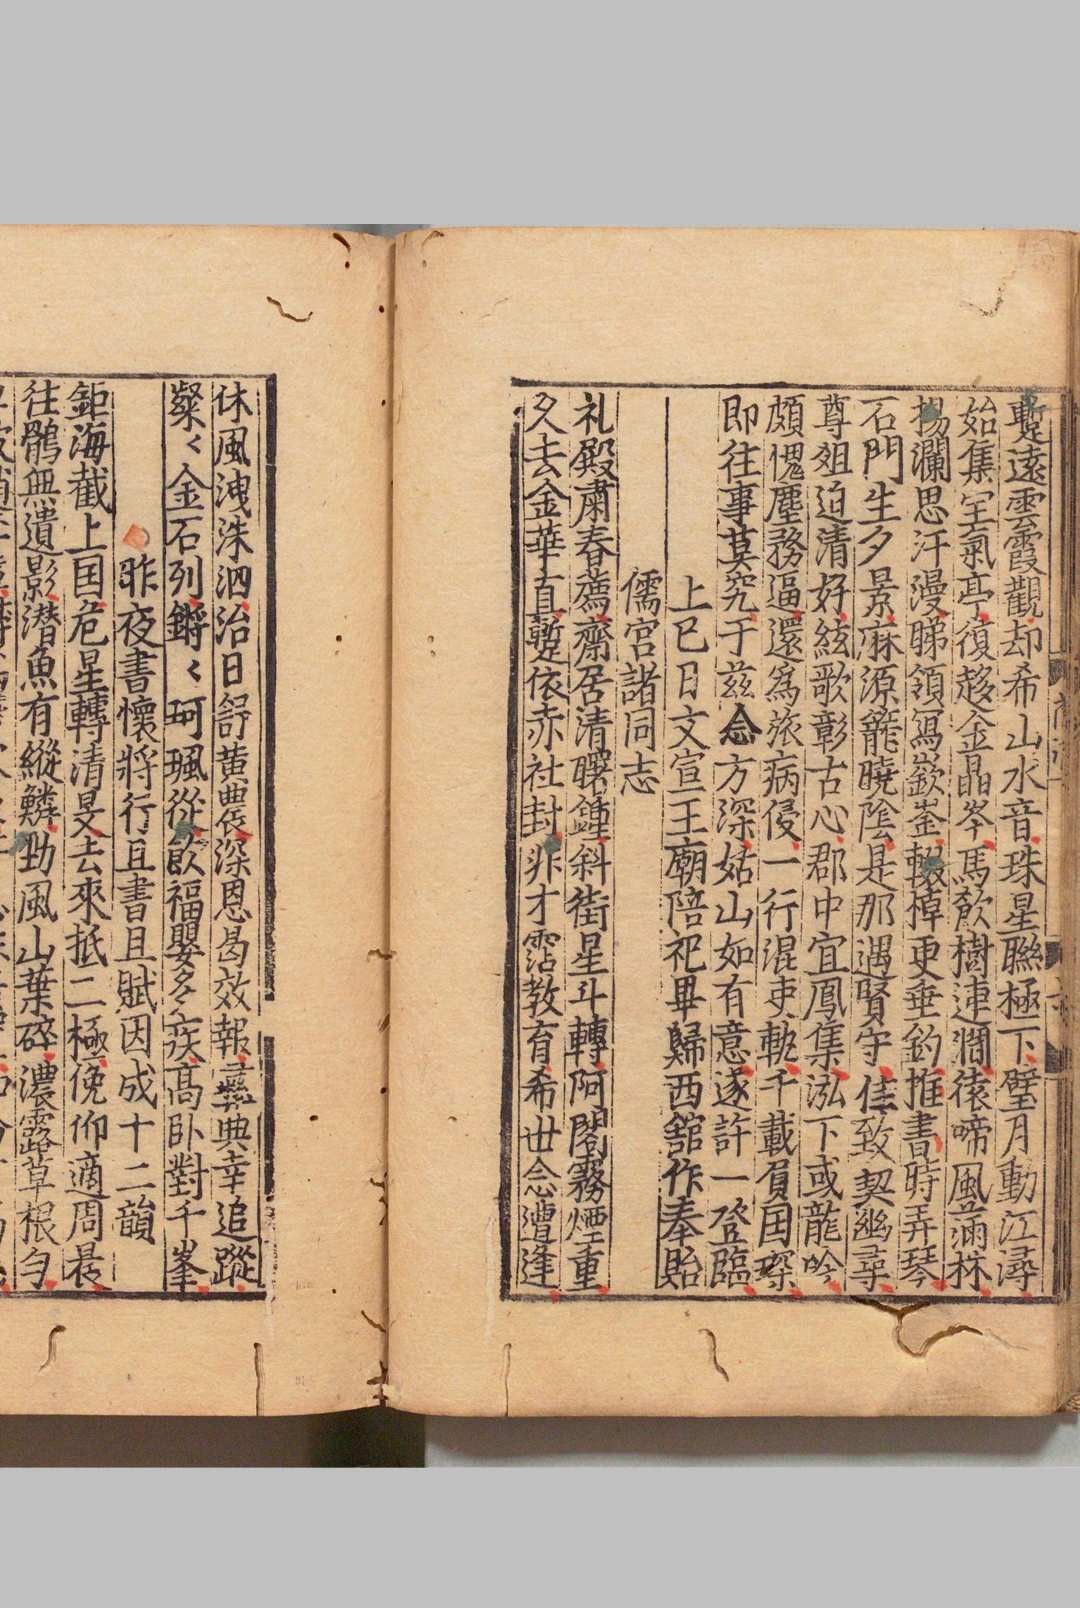 蹔遠雲霞觀却希山水音珠星聯極下璧月動江潯
始集空氣亭復趍金晶岑馬欷樹連澗猿啼風滿林
揚瀾思汗漫睇領寫嶔崟輟棹更垂釣推書時弄琴
石門生夕景麻源籠曉陰是那遇賢守佳致契幽尋
尊俎迫清好絃歌彰古心郡中宜鳳集泓下或龍吟
頗愧塵務逼還為旅病侵一行混吏軛千載負囯琛
即往事莫究于兹念方深姑山如有意遂許一登臨
上巳日文宣王廟陪祀畢歸西舘作奉貽
儒宮諸同志
礼殿肅春薦齋居清曙鍾斜街星斗轉阿閣霧煙重
久去金華直蹔依赤社封非才霑教育希世念遭逢
休風洩洙泗治日舒黄農深恩曷效報彝典幸追蹤
粲〻金石列鏘〻珂珮從歆福嬰多疾高卧對千峯
昨夜書懷將行且書且賦因成十二韻
鉅海截上囯危星轉清旻去來抵二極俛仰適周晨
往鶻無遺影潜魚有縱鱗勁風山葉碎濃露草根勻